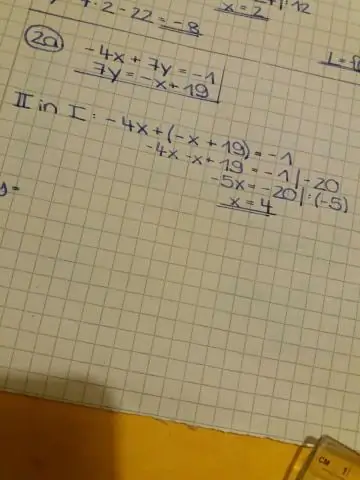 · 2 - 22 = -8
x = 2
| : 12
2a
-4x + 7y = -1
7y = -x + 19
L =
II in I : -4x + (-x + 19) = -1
-4x - x + 19 = -1 | -20
-5x = -20 | : (-5)
x = 4
y =
CM 1